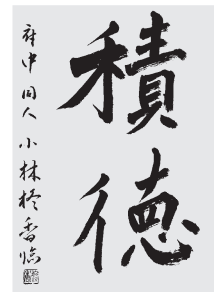 積德
府中 同人 小林 香臨